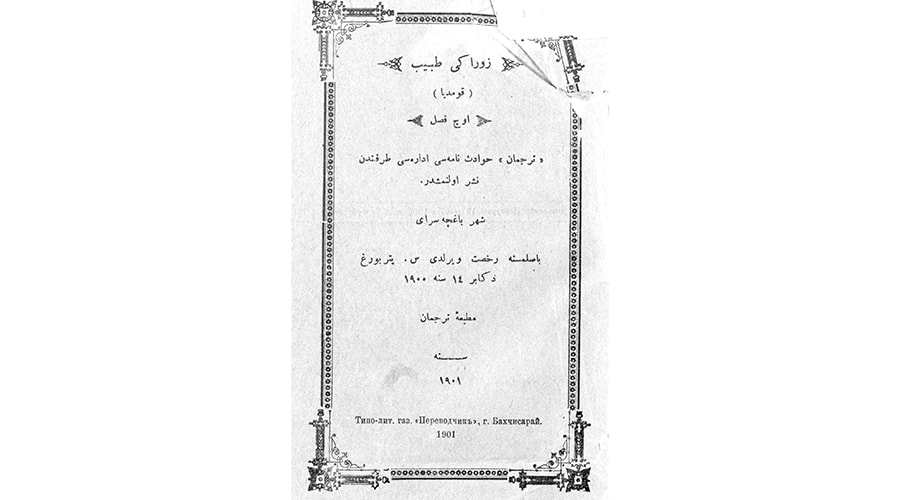 زوراكی طبیب
( قومدیا )
اوچ فصل
« ترجمان » حوادث نامه‌سی اداره‌سی طرفندن
نشر اولنمشدر.
شهر باغچه سرای
باصلمسنه رخصت ویرلدی س. پتربورغ
دكابر ١٤ سنه ١٩٠٠
مطبعهٔ ترجمان
ســــنه
١٩٠١
Типо-лит. газ. «Переводчикъ», г. Бахчисарай.
1901